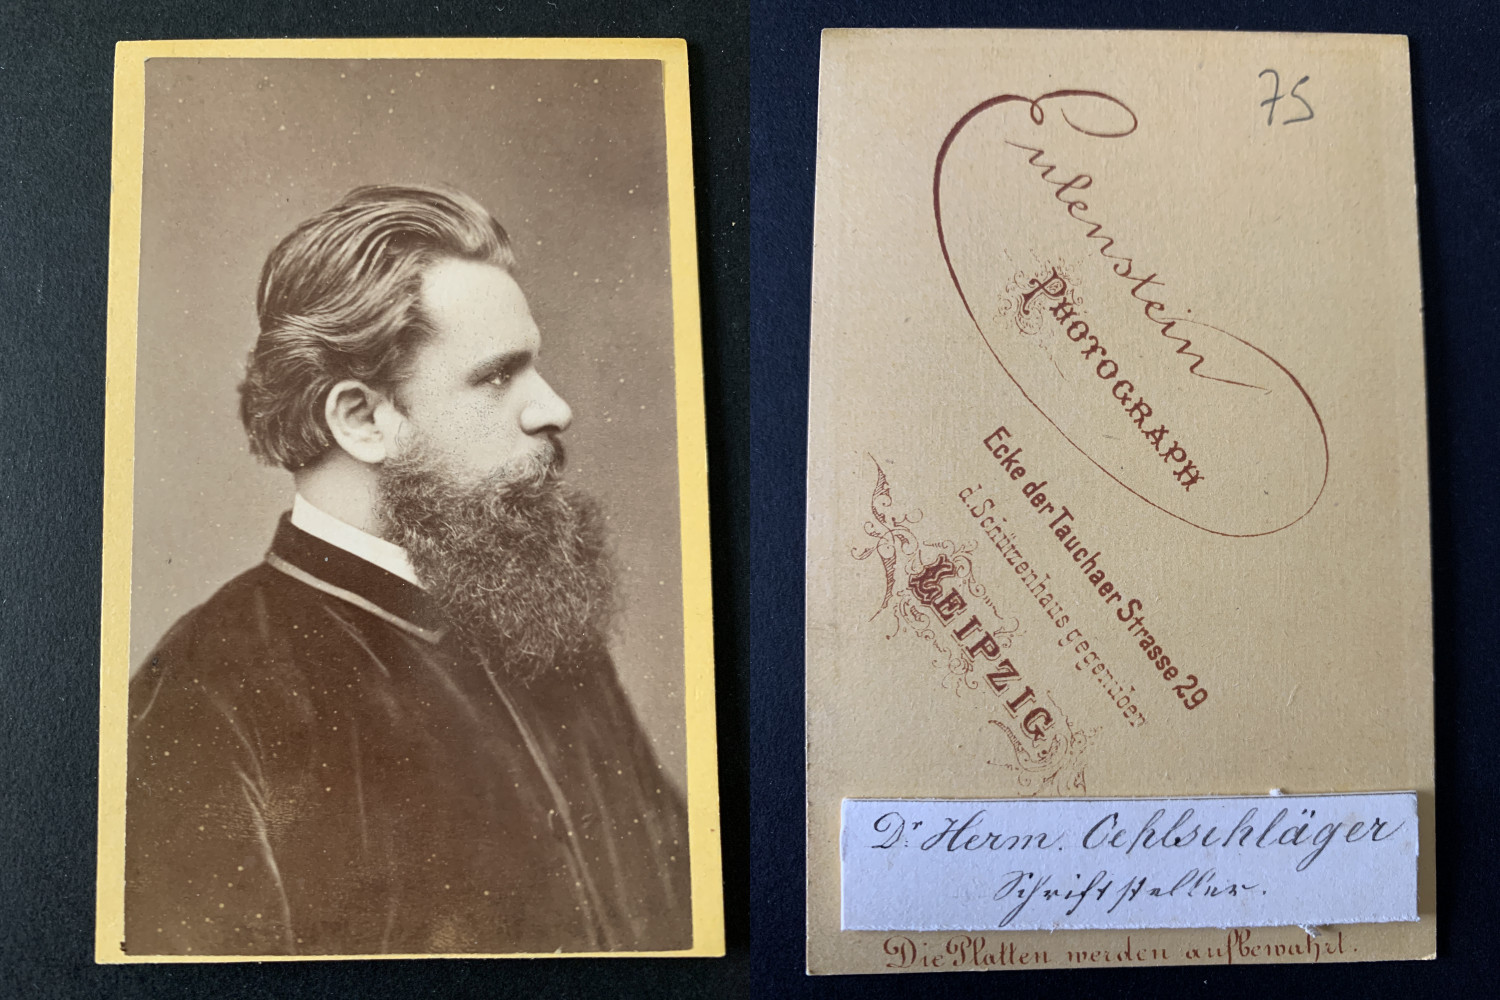 75
Eulenstein
PHOTOGRAPH
Ecke der Tauchaer Strasse 29
d. Schützenhaus gegenüber
LEIPZIG
Dr. Herm. Oehlschläger
Schriftsteller.
Die Platten werden aufbewahrt.